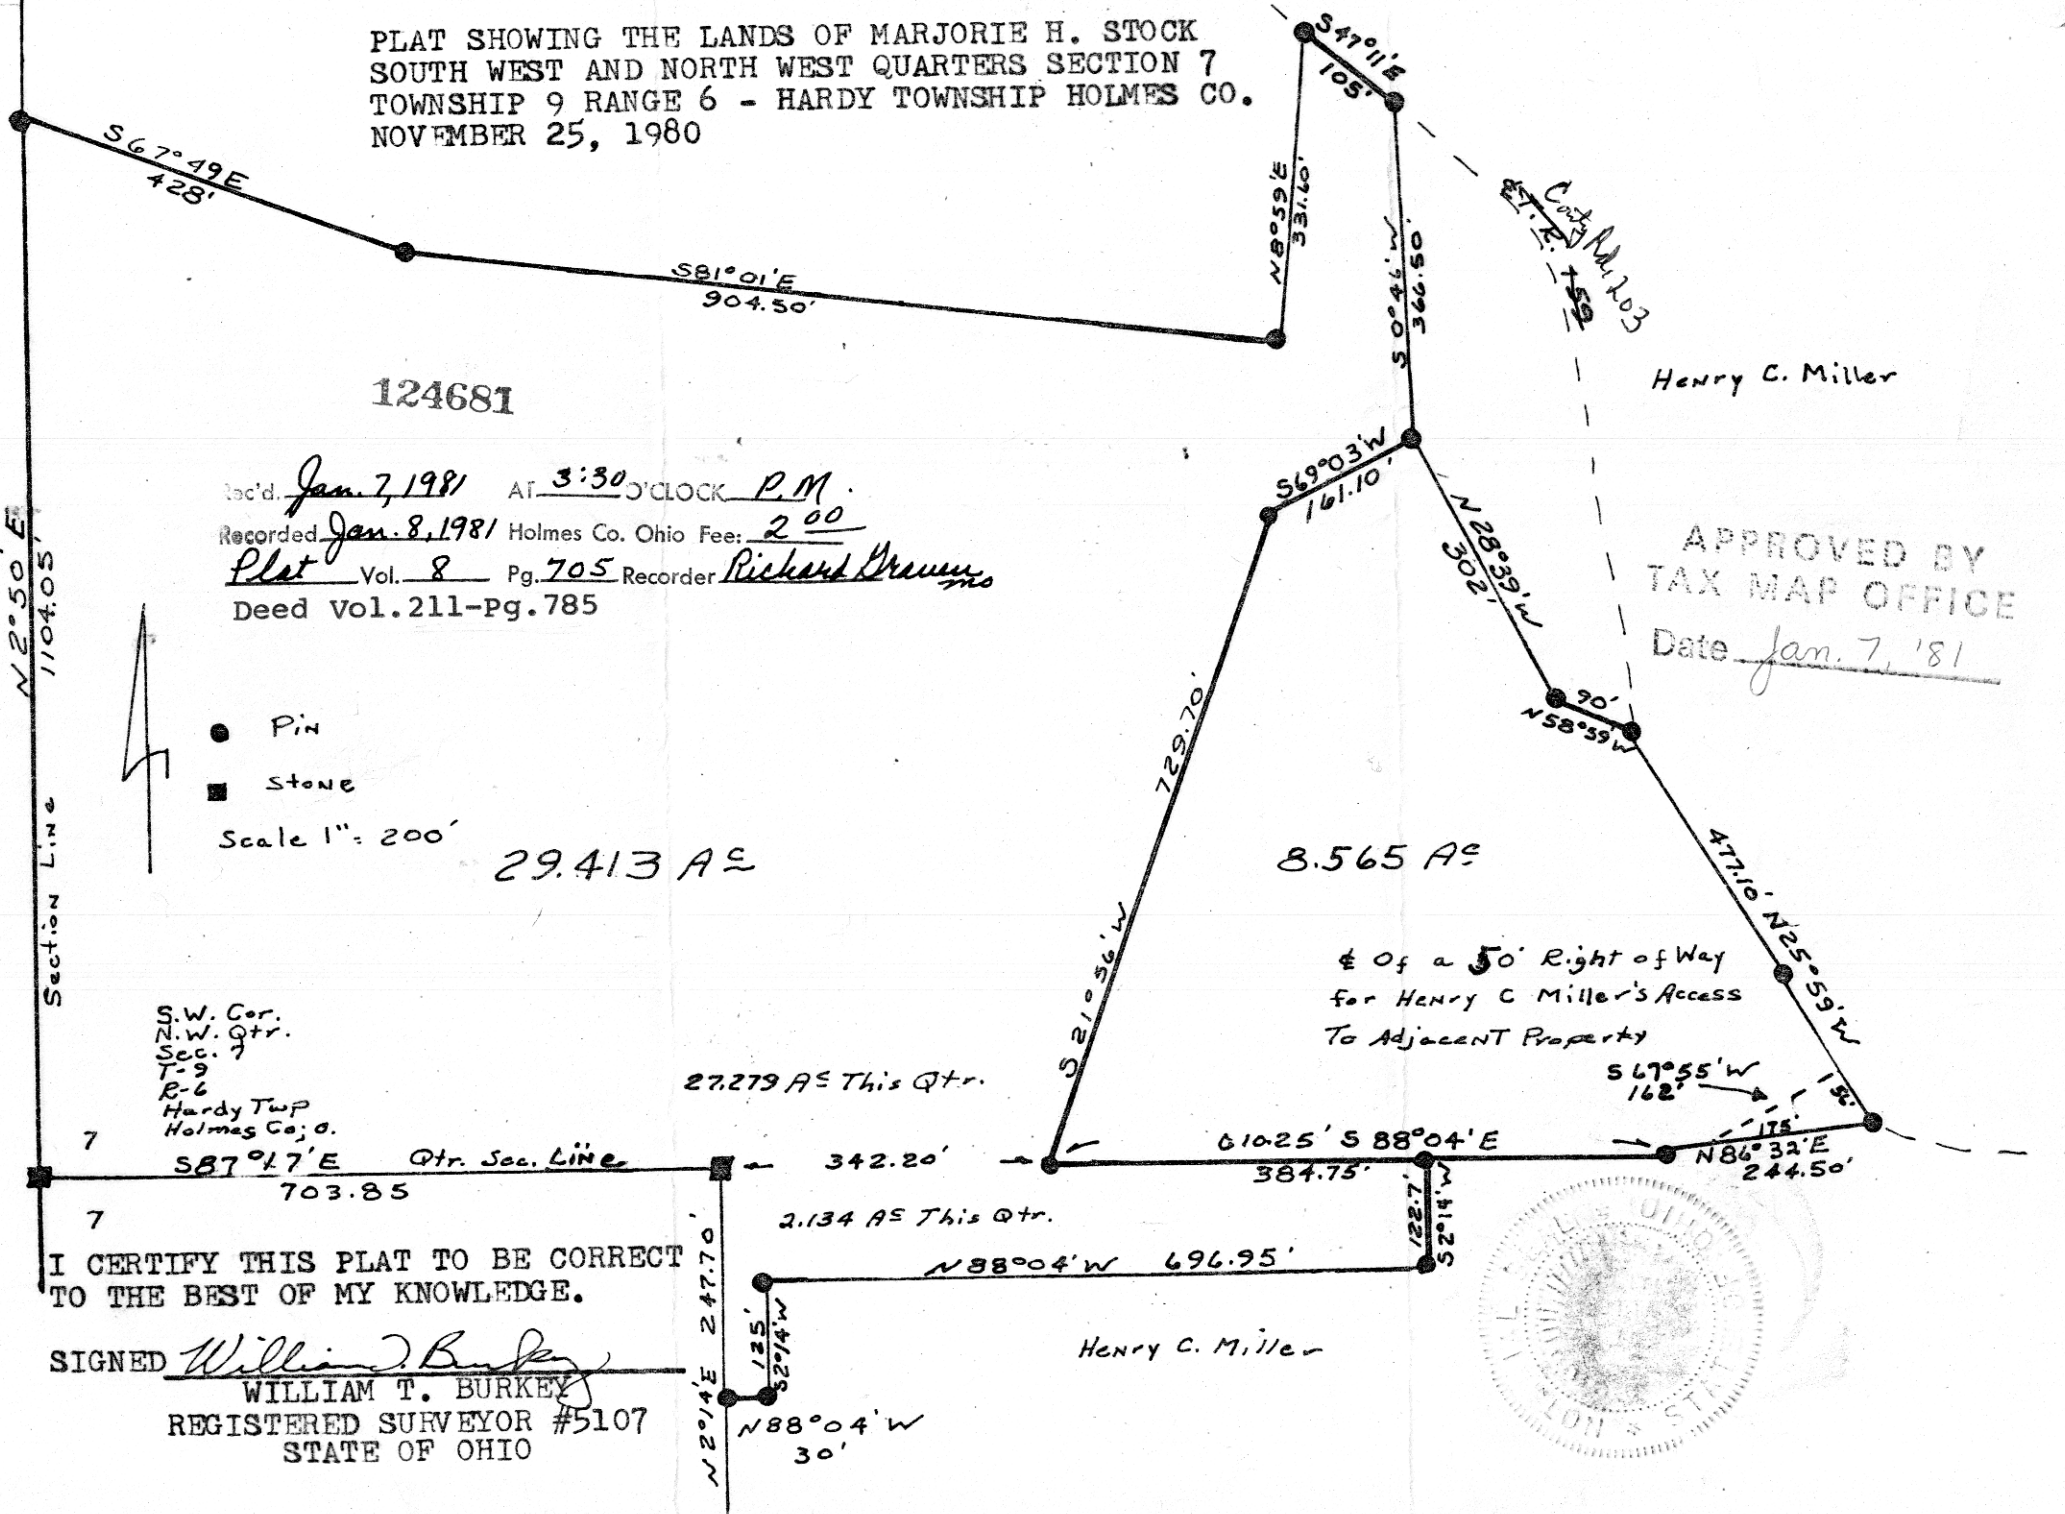 PLAT SHOWING THE LANDS OF MARJORIE H. STOCK
SOUTH WEST AND NORTH WEST QUARTERS SECTION 7
TOWNSHIP 9 RANGE 6 - HARDY TOWNSHIP HOLMES CO.
NOVEMBER 25, 1980
S47°11'E
105'
S67°49E
428'
S81°01'E
904.50'
N8°59'E
331.60'
S0°46'W
366.50'
T.R. 159
County Rd. 203
Henry C. Miller
124681
Rec'd. Jan. 7, 1981 AT 3:30 O'CLOCK P.M.
Recorded Jan. 8, 1981 Holmes Co. Ohio Fee: 2 00
Plat Vol. 8 Pg. 705 Recorder Richard Graven
Deed Vol.211-Pg.785
S69°03'W
161.10'
N28°39'W
302'
APPROVED BY
TAX MAP OFFICE
Date Jan. 7, '81
N2°50'E
1104.05'
Section Line
Pin
Stone
Scale 1"= 200'
90'
N58°59'W
729.70'
S21°56'W
29.413 Ac
8.565 Ac
477.10' N25°59'W
₵ Of a 50' Right of Way
for Henry C Miller's Access
To Adjacent Property
S67°55'W
162'
156'
175'
N86°32'E
244.50'
S.W. Cor.
N.W. Qtr.
Sec. 7
T-9
R-6
Hardy Twp
Holmes Co; O.
27.279 Ac This Qtr.
7
S87°17'E Qtr. Sec. Line
703.85
342.20'
610.25' S 88°04'E
384.75'
7
2.134 Ac This Qtr.
122.7'
S2°14'W
N88°04'W 696.95'
I CERTIFY THIS PLAT TO BE CORRECT
TO THE BEST OF MY KNOWLEDGE.
N2°14'E 247.70'
125'
S2°14'W
Henry C. Miller
SIGNED William T. Burkey
WILLIAM T. BURKEY
REGISTERED SURVEYOR #5107
STATE OF OHIO
N88°04'W
30'